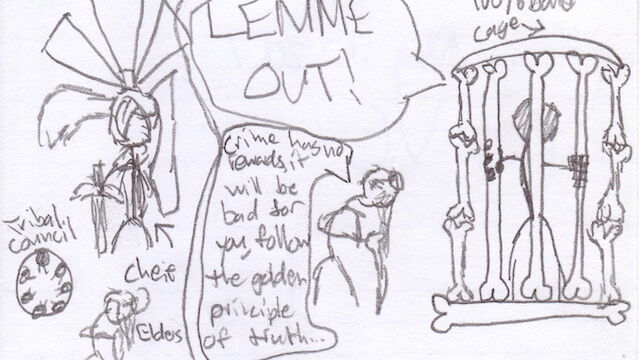 LEMME
OUT!
cage
Crime has no
rewards, it
will be
bad for
you, follow
the golden
principle
of truth...
Tribal
council
Cheif
Elders